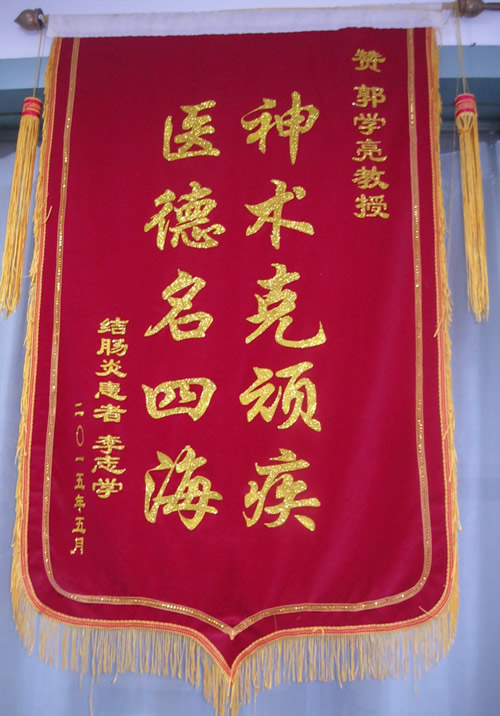 赞 郭学亮教授
神术克顽疾
医德名四海
结肠炎患者 李志学
二〇一五年五月